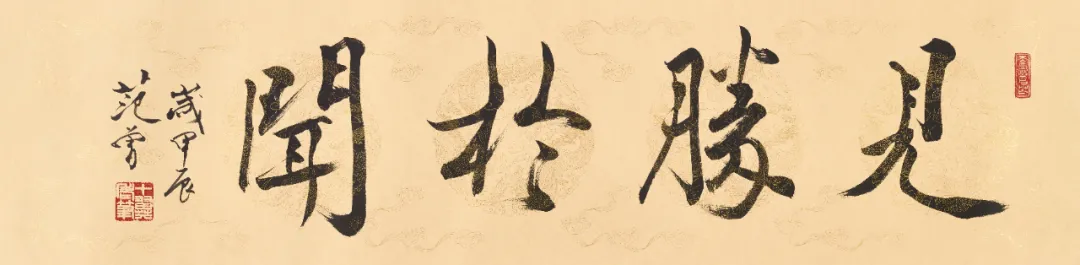 見勝於聞
歲甲辰
范曾